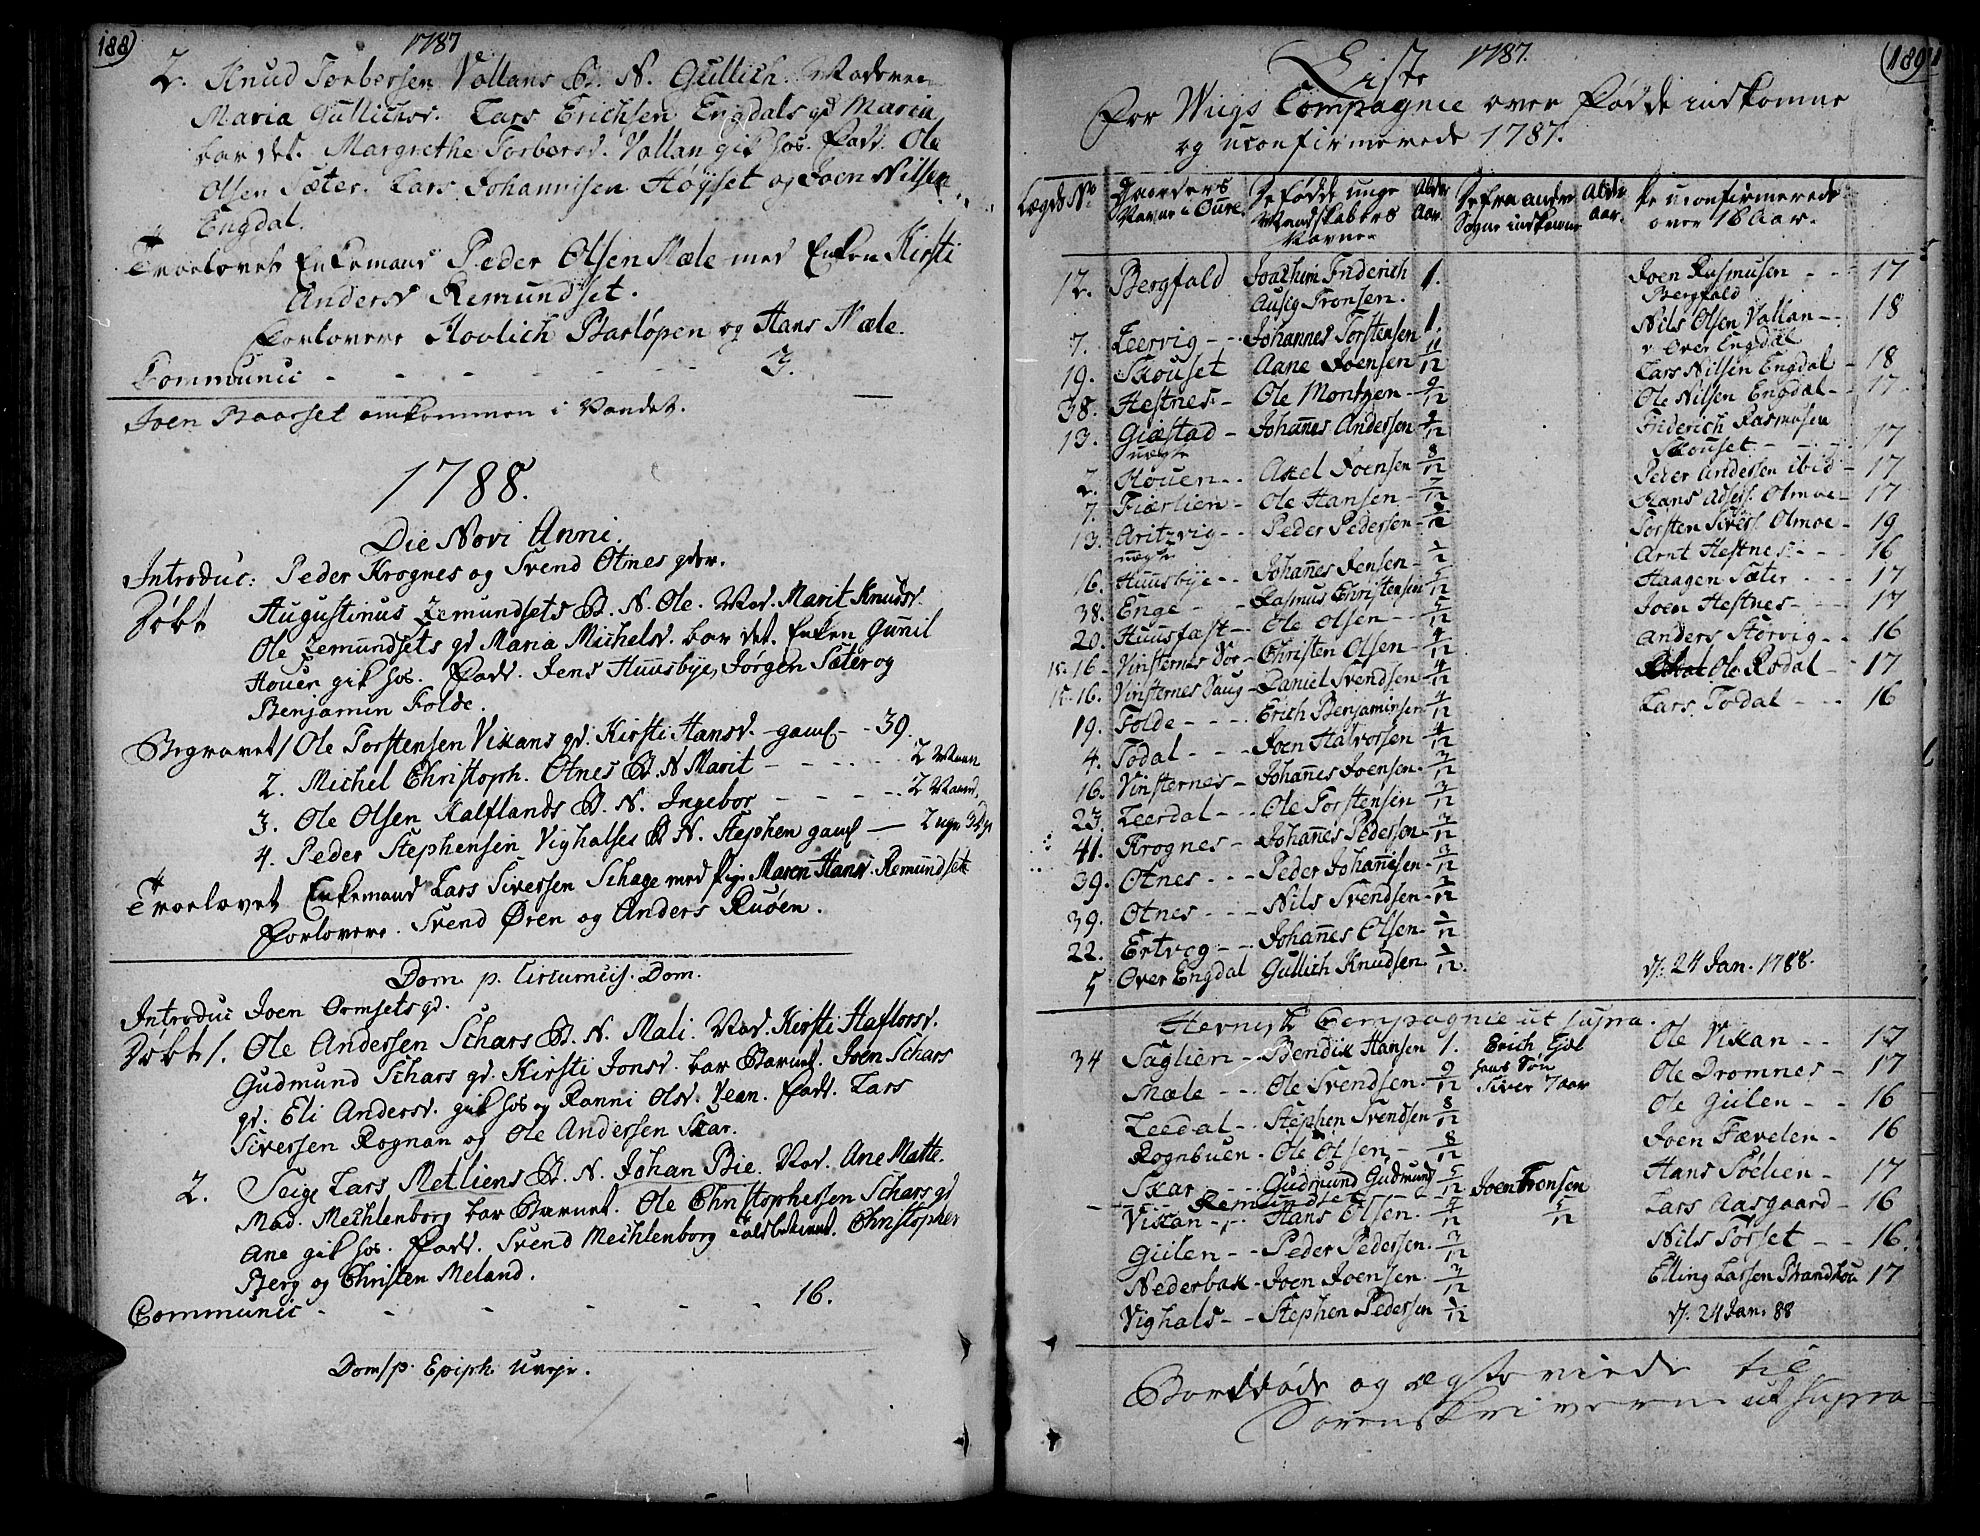 188
1787
2. Knud Torbersen Vallans B. N. Gullich. Maderen
Maria Gullichsr. Lars Erichsen Engdals gd Maria
bar det. Margrethe Torbersd. Vallan gik hos. Fadd. Ole
Olsen Sæter. Lars Johannisen Høyset og Joen Nilsen
Engdal.
Troelovet Enkemand Peder Olsen Næle med Enken Kirsti
Andersd Remundset.
Forlovere Hovlich Barlöpen og Hans Næle.
Communic - - - - - - 3.
Joen Baarset omkommen i Vandet.
1788.
Die Novi Anni.
Introduc: Peder Krognes og Svend Otnes gdr.
Døbt Augustinus Lemundsets B. N. Ole. Mad. Marit Knudsd.
Ole Lemundsets gd Maria Michelsd. bar det. Enken Gunnil
Houen gik hos. Fadd. Jens Huusbye, Jørgen Sæter og
Benjamin Folde.
Begravet 1 Ole Torstensen Vikans gd. Kirsti Hansd. - gaml - - 39.
2. Michel Christoph. Otnes B N Marit - - - - 2 Maan
3. Ole Olsen Kalflands B. N. Ingebor - - - - 2 Maand.
4. Peder Stephensen Vighalses B N. Stephen gaml — 2 uger 3 dge
Troelovet Enkemand Lars Siversen Schage med Pige Maren Hansd. Remundset
Forlovere. Svend Øren og Anders Ruøen.
Dom. p. Circumcis. Dom.
Introduc Joen Ormsets gd.
Døbt 1. Ole Andersen Schars B. N. Mali. Mad. Kirsti Haflorsd.
Gudmund Schars gd. Kirsti Jonsd. bar Barnet. Joen Schars
gd. Eli Andersd. gik hos og Ranni Olsd. Vean. Fadd. Lars
Siversen Rognan og Ole Andersen Skar.
2. Seige Lars Metliens B. N. Johan Bie. Mad. Ane Matte.
Mad. Mechlenborg bar Barnet. Ole Christophersen Schars gd
Ane gik hos. Fadd. Svend Mechlenborg Toldbetient. Christopher
Berg og Christen Meland.
Communic - - - - - - 16.
Dom p. Epiph. Uveje.
1787.
189
Liste
For Wiigs Compagnie over Fødde indkomne
og uconfirmerede 1787.
Lægds No Gaardens Navne i Oure. De fødde unge Mandskabers Navne Alder Aar. De fra andre Sogne indkomne Alder Aar. De uconfirmerede over 16 Aar.
12. Bergfald Joachim Friderich 1. Joen Rasmusen - - 17
Ausig Tronsen. Bergfald
7. Leervig - - Johannes Torstensen 1. Nils Olsen Vallan - - 18
v Over Engdal
19. Skouset Aane Joensen 11/12 Lars Nilsen Engdal - 18
38. Hestnes - Ole Montzen - 9/12 Ole Nilsen Engdal - - 17.
13. Giæstad - Johannes Andersen 9/12 Friderich Rasmusen
uægte Skouset - - - - 17
2. Houen - - Axel Joensen 8/12 Peder Andersen ibid - 17
7. Fiærlien - Ole Hansen - 7/12 Hans Adsers. Olmoe - 17
13. Aritzvig - - Peder Pedersen - /12 Torsten Sivers. Olmoe - 19
uægte Arnt Hestnes - - - 16
16. Huusbye - - Johannes Jensen - /12 Haagen Sæter - - - 17
38. Enge - - - Rasmus Christensen /12 Joen Hestnes - - - 17
20. Huusfast - - Ole Olsen - - 5/12 Anders Storvig - - 16
15-16 - Vinsternes Nor - Christen Olsen - 4/12 Ole Rodal - - 17
15-16. Vinsternes Saug - Daniel Svendsen 4/12 Lars Todal - - - 16
19. Folde - - - Erich Benjaminsen 4/12
4. Todal - - - Joen Halvorsen 4/12
16. Vinsternes - Johannes Joensen - 3/12
23. Leerdal - - Ole Torstensen 3/12
41. Krognes - Johannes Pedersen - 3/12
39. Otnes - - - Peder Johannesen - 3/12
39. Otnes - - - Nils Svendsen - /12
22. Ertveg - - Johannes Olsen - /12
5 Over Engdal Gullich Knudsen /12. d/: 24 Jan. 1788.
Hevnisk Compagnie ut supra.
34 Saglien - Bendix Hansen 1. Erich Giøl Ole Vikan - - 17
hans Søn
Næle - - Ole Svendsen - 9/12 Siver 7 aar Ole Dromnes - 17
Leedal - - Stephen Svendsen 8/12 Ole Giilen - - 16
Rognbuen - Ole Olsen - 8/12 Joen Fævelen - 16
Skar - - - Gudmund Gudmunds 5/12 Joen Tronsen Hans Søelien - 17
Remundset 5/12
Vikan - - Hans Olsen - 4/12 Lars Aasgaard - 16
Giilen - - Peder Pedersen - 3/12 Nils Torset - - 16.
Nederbak - Joen Joensen. 3/12 Elling Larsen Brandhou 17
Vighals - - Stephen Pedersen /12 d/: 24 Jan. 88
Bortdøde og ægteviede til
Sorenskriveren ut supra